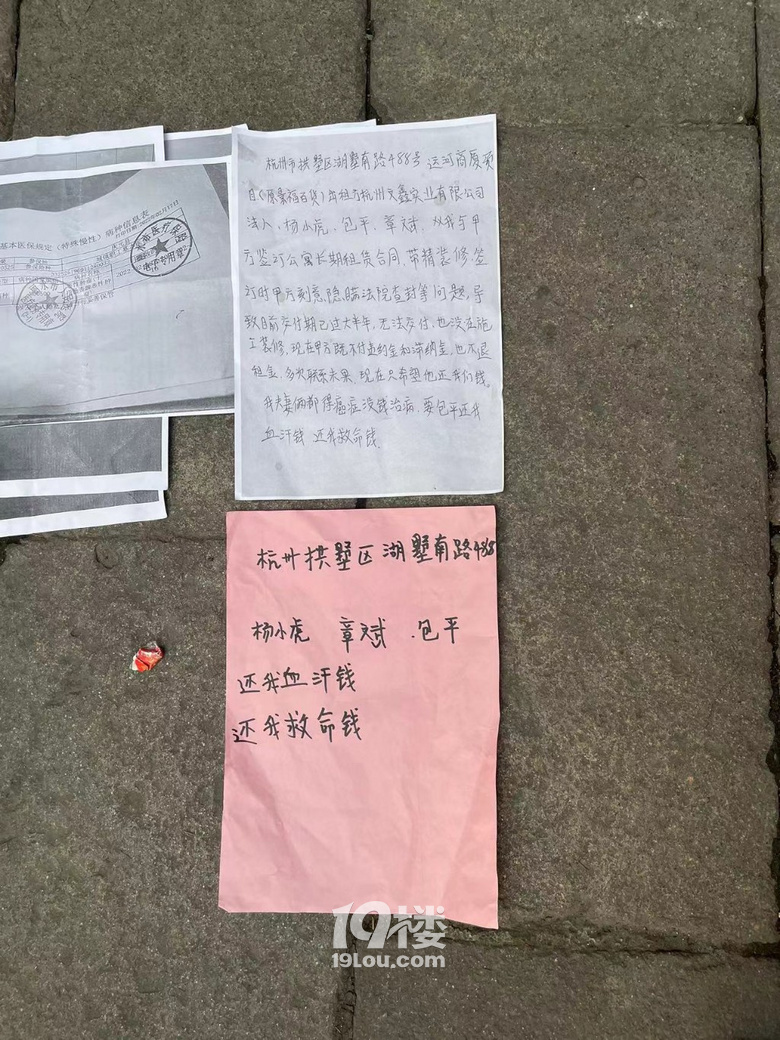 基本医保规定（特殊慢性）病种信息表
杭州市拱墅区湖墅南路488号 运河商厦项
目(原景福百货)出租方杭州文鑫实业有限公司
法人、杨小虎、包平、章斌、从我与甲
方签订公寓长期租赁合同，带精装修 签
订时甲方刻意隐瞒法院查封等问题，导
致目前交付期已过大半年，无法交付，也没在施
工装修，现在甲方既不付违约金和滞纳金，也不退
租金，多次联系未果，现在只希望他还我们钱。
我夫妻俩都得癌症没钱治病，要包平还我
血汗钱 还我救命钱
杭州拱墅区湖墅南路488
杨小虎 章斌 .包平
还我血汗钱
还我救命钱
19楼
19Lou.com